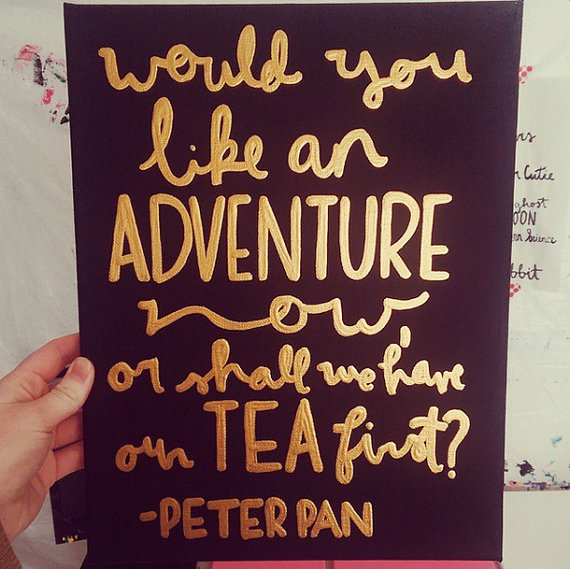 would you
like an
ADVENTURE
now,
or shall we have
our TEA first?
-PETER PAN
Cutie
ghost
Science